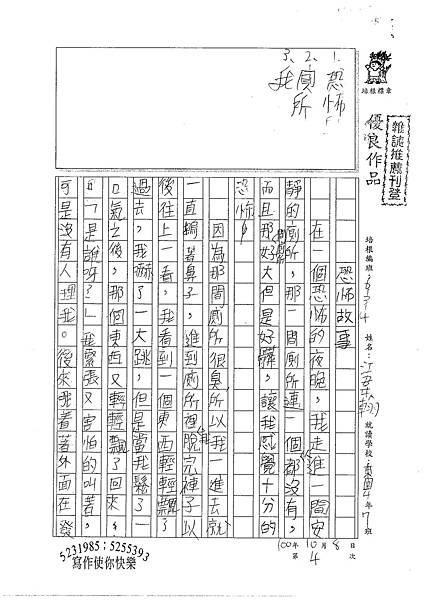 1. 恐怖
2. 廁所
3. 我
培根標章
雜誌推薦刊登
優良作品
培根編班：
姓名：
就讀學校：
4年7班
恐怖故事
在一個恐怖的夜晚，我走進一間安
靜的廁所，那一間廁所連一個都沒有，
而且那好大但是好髒，讓我感覺十分的
恐怖！
因為那間廁所很臭，所以我一進去就
一直摀著鼻子，進到廁所裡脫完褲子以
後往上一看，我看到一個東西輕輕飄了
過去，我嚇了一大跳，但是當我鬆了一
口氣之後，那個東西又輕輕飄了回來，
「是誰呀？」我緊張又害怕的叫著，
可是沒有人理我。後來我看著外面在發
100年10月8日
第4次
5231985；5255393
寫作使你快樂